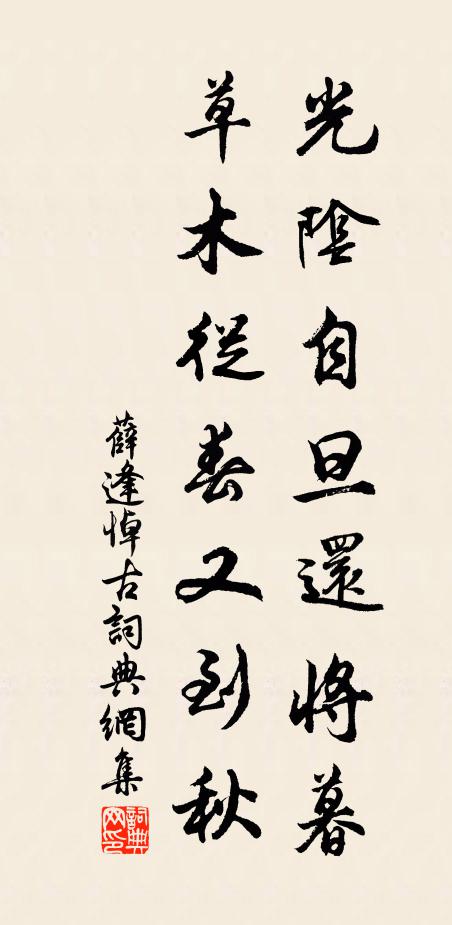 光陰自旦還將暮
草木從春又到秋
薛逢悼古詞典網集
詞典
网印